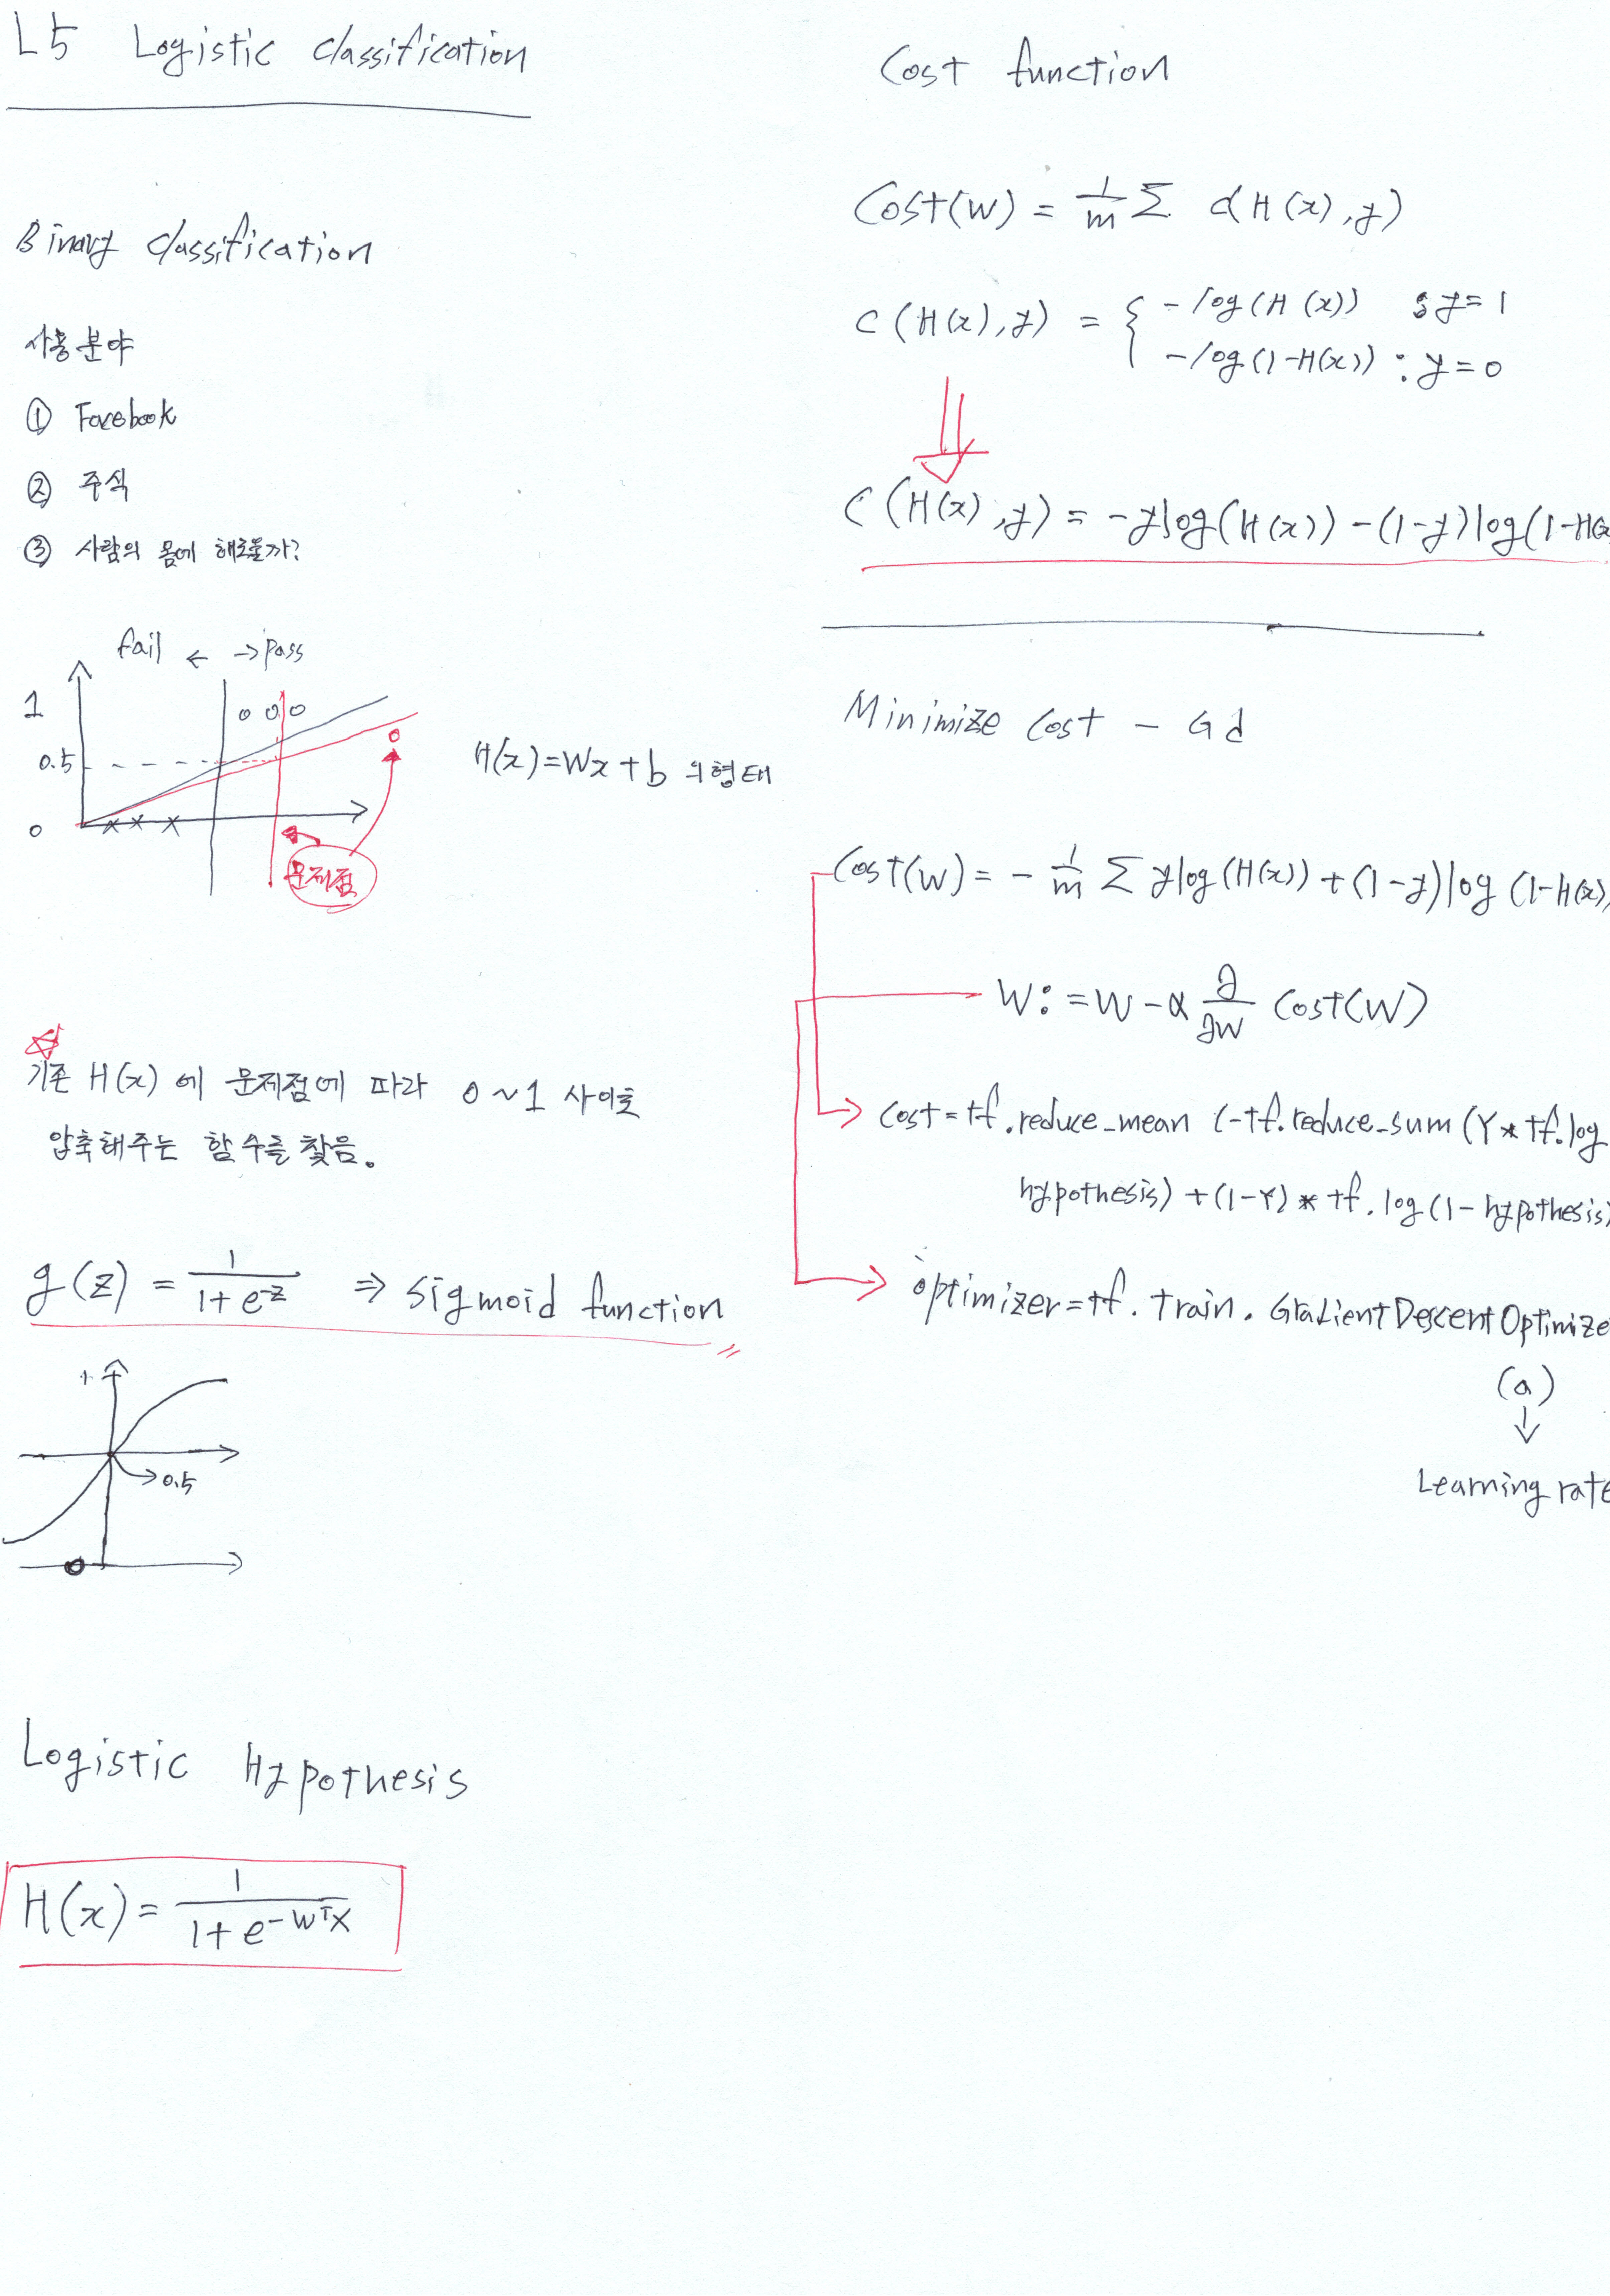 L5 Logistic classification
Binary classification
사용분야
① Facebook
② 주식
③ 사람의 몸에 해로울까?
fail ← →pass
1
0 0 0
0
0.5
H(x)=Wx+b 의형태
0
x x x
문제점
기존 H(x) 에 문제점에 따라 0~1 사이로
압축해주는 함수를 찾음.
g(z) = 1/(1+e^-z) ⇒ sigmoid function
1
→0.5
0
Logistic Hypothesis
H(x) = 1/(1+e^-WᵀX)
Cost function
Cost(W) = 1/m Σ c(H(x),y)
C(H(x),y) = { -log(H(x)) : y=1
-log(1-H(x)) : y=0
C(H(x),y) = -ylog(H(x)) -(1-y)log(1-H(x
Minimize Cost - Gd
Cost(W) = - 1/m Σ ylog(H(x)) + (1-y)log(1-H(x)
W := W - α ∂/∂W Cost(W)
cost = tf.reduce_mean (-tf.reduce_sum (Y * tf.log
hypothesis) + (1-Y) * tf.log(1-hypothesis)
optimizer = tf.train.GradientDescentOptimize
(a)
↓
Learning rate